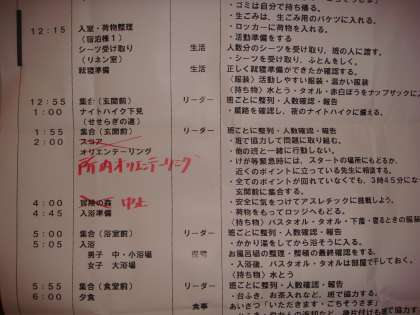 ・ゴミは自分で持ち帰る。
・生ごみは、生ごみ用のバケツに入れる。
12:15 入室・荷物整理 ・ロッカーに荷物を入れる。
(宿泊棟1) ・活動準備をする
シーツ受け取り 生活 人数分のシーツを受け取り、班の人に渡す。
(リネン室) ・シーツを受け取り、ふとんをしく。
就寝準備 生活 正しく就寝準備ができたか確認する。
(服装)活動しやすい服装・温かい服装
(持ち物)水とう・タオル・赤白ぼうをナップザックに
12:55 集合(玄関前) リーダー 班ごとに整列・人数確認・報告
1:00 ナイトハイク下見 ・順路を確認し、夜のナイトハイクに備える。
(せせらぎの道)
1:55 集合(玄関前) リーダー 班ごとに整列・人数確認・報告
2:00 スコア ・班で協力して問題に取り組む。
オリエンテーリング ・他の班と一緒に行動しない。
所内オリエンテーリング ・けが等緊急時には、スタートの場所にもどるか、
近くのポイントに立っている先生に相談する。
・全てのポイントが回れていなくても、3時45分にな
玄関前に集合する。
4:00 冒険の森 中止 ・安全に気をつけてアスレチックに挑戦しよう。
4:45 入浴準備 ・荷物をもってロッジへもどる。
(持ち物)バスタオル・タオル・下着・寝るときの服装
5:00 集合(浴室前) リーダー 班ごとに整列・人数確認・報告
5:05 入浴 ・かかり湯をしてから浴そうに入る。
男子 中・小浴場 お風呂場の整理・整頓の最終確認をする。
女子 大浴場 ・入浴後、バスタオル・タオルは部屋で干しておく。
(持ち物)水とう
5:55 集合(食堂前) リーダー 班ごとに整列・人数確認・報告
6:00 夕食 ・台ふき、お茶入れなど、班で協力する。
食事 あいさつ「いただきます・ごちそうさま」